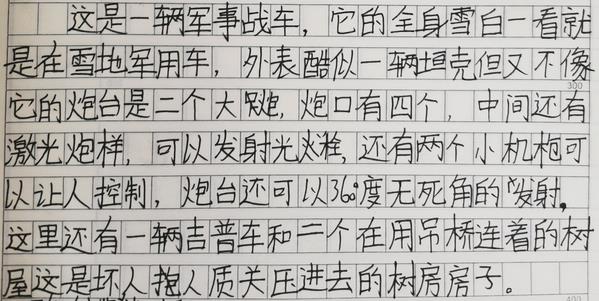 这是一辆军事战车，它的全身雪白一看就
是在雪地军用车，外表酷似一辆坦克但又不像
它的炮台是二个大炮，炮口有四个，中间还有
300
激光炮样，可以发射光炮，还有两个小机枪可
以让人控制，炮台还可以360度无死角的发射，
这里还有一辆吉普车和二个在用吊桥连着的树
屋这是坏人抱人质关压进去的树房房子。
400